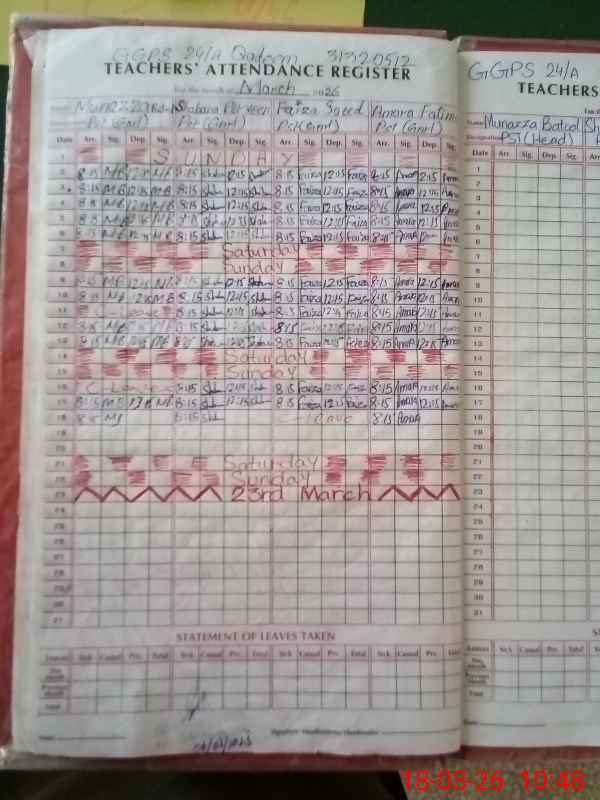 GGPS 24/A Qadeem 31320512
TEACHERS' ATTENDANCE REGISTER
For the month of March 2026
Name Munazza Batool Shabana Perveen Faiza Saeed Amara Fatima
Pst (Gnrl) Pst (Gnrl) Pst (Gnrl)
Date Arr. Sig. Dep. Sig. Arr. Sig. Dep. Sig. Arr. Sig. Dep. Sig. Arr. Sig. Dep. Sig.
1 SUNDAY
2 8:15 MB 12:15 MB 8:15 12:15 8:15 Faiza 12:15 Faiza 8:15 Amara 12:15 Amara
3 8:15 MB 12:15 MB 8:15 12:15 8:15 Faiza 12:15 Faiza 8:15 Amara 12:15 Amara
4 8:15 MB 12:15 MB 8:15 12:15 8:15 Faiza 12:15 Faiza 8:15 Amara 12:15 Amara
5 8:15 MB 12:15 MB 8:15 12:15 8:15 Faiza 12:15 Faiza 8:15 Amara 12:15 Amara
6 8:15 MB 12:15 MB 8:15 12:15 8:15 Faiza 12:15 Faiza 8:15 Amara Amara
7 Saturday
8 Sunday
9 8:15 MB 12:15 MB 8:15 12:15 8:15 Faiza 12:15 Faiza 8:15 Amara 12:15 Amara
10 8:15 MB 12:15 MB 8:15 12:15 8:15 Faiza 12:15 Faiza 8:15 Amara 12:15 Amara
11 C-Leave 8:15 12:15 Faiza 12:15 Faiza 8:15 Amara 12:15 Amara
12 8:15 MB 12:15 MB 8:15 12:15 8:15 Faiza 12:15 Faiza 8:15 Amara 12:15 Amara
13 8:15 MB 12:15 MB 8:15 8:15 Faiza Faiza 8:15 Amara 12:15 Amara
14 Saturday
15 Sunday
16 C-Leave 8:15 12:15 8:15 Faiza 12:15 Faiza 8:15 Amara 12:15 Amara
17 8:15 MB MB 8:15 12:15 8:15 Faiza 12:15 Faiza 8:15 Amara 12:15 Amara
18 8:15 MB 8:15 C-Leave 8:15 Amara
19
20
21 Saturday
22 Sunday
23 23rd March
24
25
26
27
28
29
30
31
STATEMENT OF LEAVES TAKEN
Leaves Sick Casual Prv. Total Sick Casual Prv. Total Sick Casual Prv. Total Sick Casual Prv. Total
This Month
Previous Month
Total
Date Signature Headmistress/Headmaster
GGPS 24/A
TEACHERS
Name Munazza Batool
Designation PST (Head)
Date Arr. Sig. Dep. Sig. Arr.
1
2
3
4
5
6
7
8
9
10
11
12
13
14
15
16
17
18
19
20
21
22
23
24
25
26
27
28
29
30
31
Leaves Sick Casual Prv. Total Sick
This Month
Previous Month
Total
Date
18-03-26 10:48